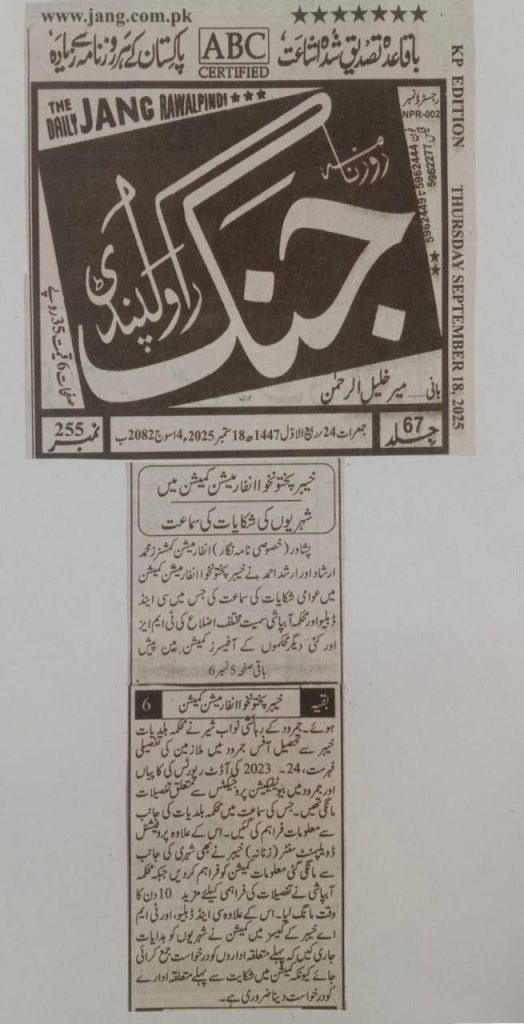 www.jang.com.pk
★★★★★★★
پاکستان کے ہر روزنامہ سے زیادہ، ABC CERTIFIED باقاعدہ تصدیق شدہ اشاعت،
THE DAILY JANG RAWALPINDI ★★★
رجسٹرڈ نمبر
NPR-002
5962444
5962277
5962449
★★
KP EDITION THURSDAY SEPTEMBER 18, 2025
روزنامہ
جنگ
راولپنڈی
صفحات 6 قیمت 35 روپے
بانی ..... میر خلیل الرحمٰن
جلد 67 جمعرات 24؍ ربیع الاوّل 1447ھ 18 ستمبر 2025ء 4 اسوج 2082 ب نمبر 255
خیبر پختونخوا انفارمیشن کمیشن میں
شہریوں کی شکایات کی سماعت
پشاور (خصوصی نامہ نگار) انفارمیشن کمشنرز محمد
ارشاد اور ارشد احمد نے خیبر پختونخوا انفارمیشن کمیشن
میں عوامی شکایات کی سماعت کی جس میں سی اینڈ
ڈبلیو اور محکمہ آبپاشی سمیت مختلف اضلاع کی ٹی ایم ایز
اور کئی دیگر محکموں کے آفیسرز کمیشن میں پیش
باقی صفحہ 5 نمبر 6
بقیہ خیبر پختونخوا انفارمیشن کمیشن 6
ہوئے۔ جمرود کے رہائشی نواب شیر نے محکمہ بلدیات
خیبر سے تحصیل آفس جمرود میں ملازمین کی تفصیلی
فہرست، 24-2023 کی آڈٹ رپورٹس کی کاپیاں
اور جمرود میں بیوٹیفکیشن پروجیکٹس سے متعلق تفصیلات
مانگی تھیں۔ جس کی سماعت میں محکمہ بلدیات کی جانب
سے معلومات فراہم کی گئیں۔ اس کے علاوہ پروفیشنل
ڈویلپمنٹ سنٹر (زنانہ) خیبر نے بھی شہری کی جانب
سے مانگی گئی معلومات کمیشن کو فراہم کر دیں جبکہ محکمہ
آبپاشی نے تفصیلات کی فراہمی کیلئے مزید 10 دن کا
وقت مانگ لیا۔ اس کے علاوہ سی اینڈ ڈبلیو، اور ٹی ایم
اے خیبر کے کیسز میں کمیشن نے شہریوں کو ہدایات
جاری کیں کہ پہلے متعلقہ اداروں کو درخواست جمع کرائی
جائے کیونکہ کمیشن میں شکایت سے پہلے متعلقہ ادارے
کو درخواست دینا ضروری ہے۔